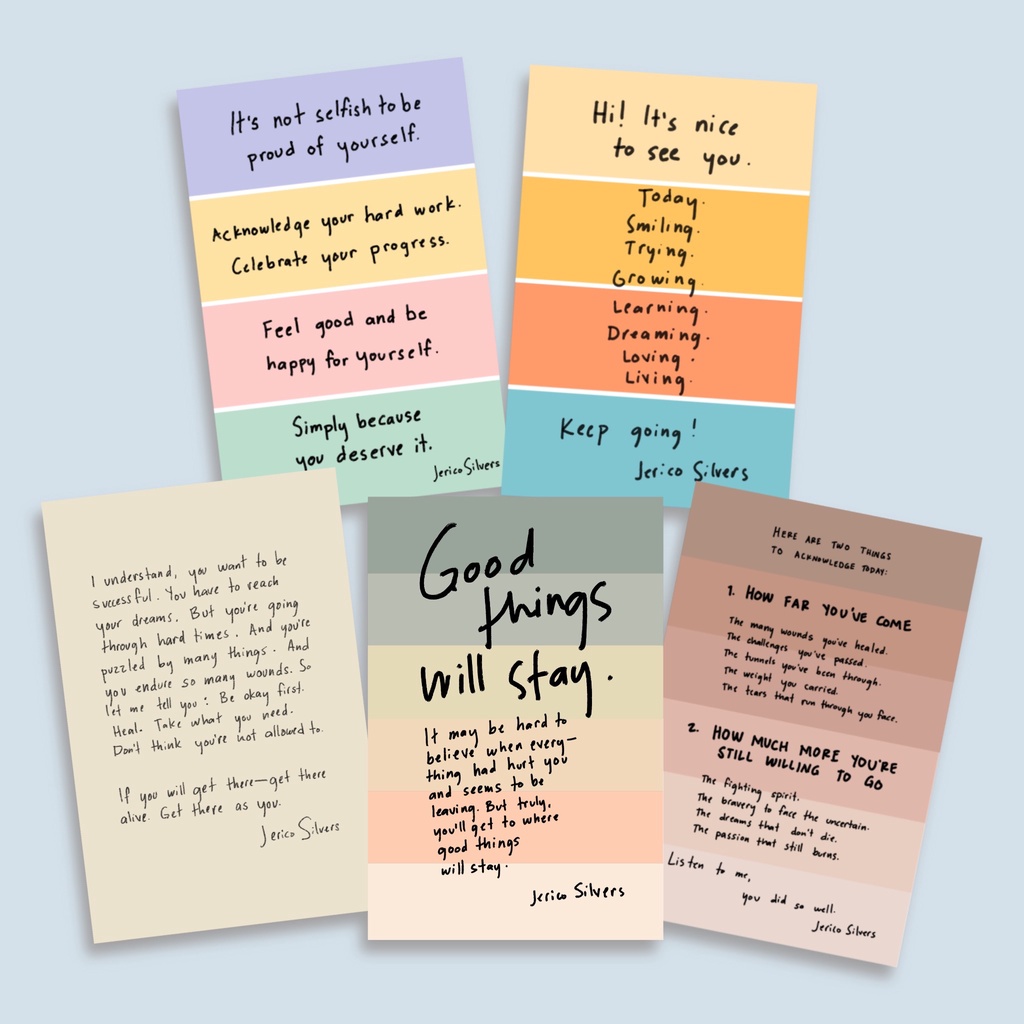 It's not selfish to be
proud of yourself.
Acknowledge your hard work.
Celebrate your progress.
Feel good and be
happy for yourself.
Simply because
you deserve it.
Jerico Silvers
Hi! It's nice
to see you.
Today.
Smiling.
Trying.
Growing.
Learning.
Dreaming.
Loving.
Living.
Keep going!
Jerico Silvers
I understand, you want to be
successful. You have to reach
your dreams. But you're going
through hard times. And you're
puzzled by many things. And
you endure so many wounds. So
let me tell you: Be okay first.
Heal. Take what you need.
Don't think you're not allowed to.
If you will get there—get there
alive. Get there as you.
Jerico Silvers
Good
things
will stay.
It may be hard to
believe when every—
thing had hurt you
and seems to be
leaving. But truly,
you'll get to where
good things
will stay.
Jerico Silvers
HERE ARE TWO THINGS
TO ACKNOWLEDGE TODAY:
1. HOW FAR YOU'VE COME
The many wounds you've healed.
The challenges you've passed.
The tunnels you've been through.
The weight you carried.
The tears that run through you face.
2. HOW MUCH MORE YOU'RE
STILL WILLING TO GO
The fighting spirit.
The bravery to face the uncertain.
The dreams that don't die.
The passion that still burns.
Listen to me,
you did so well.
Jerico Silvers